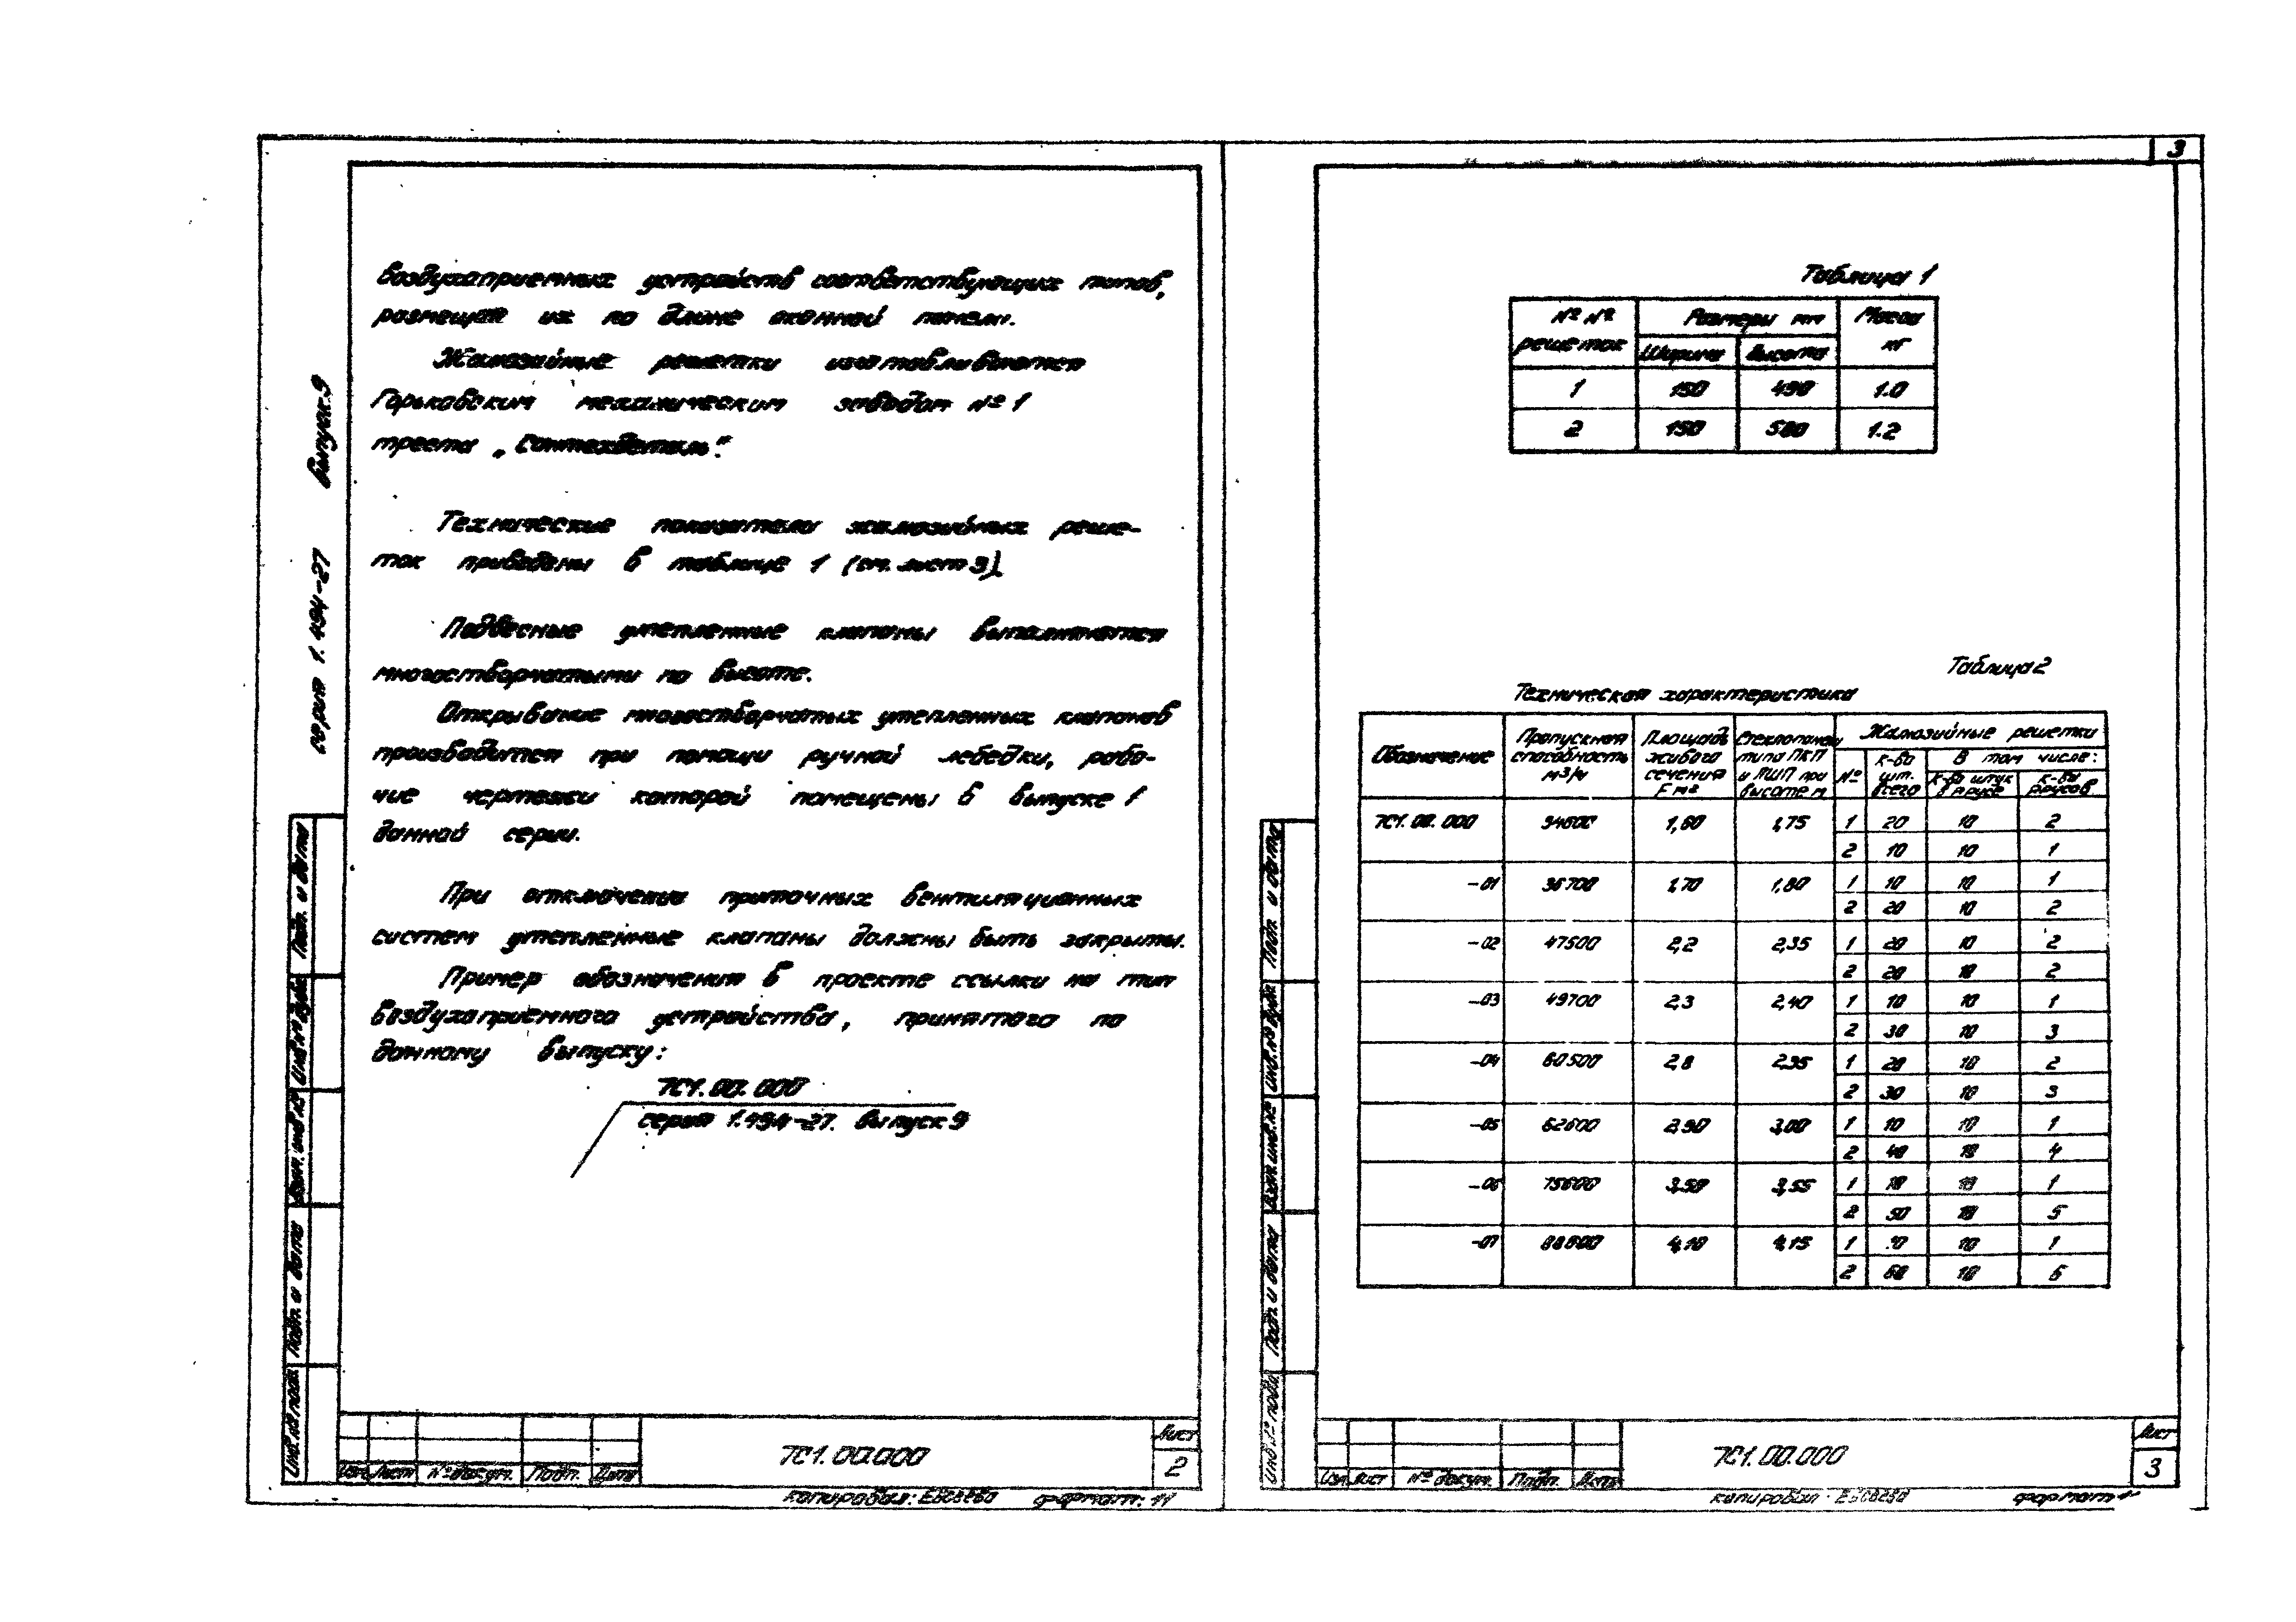 3
серия 1.494-27 выпуск 9
воздухоприемных устройств соответствующих типов,
размещая их по длине оконной панели.
Жалюзийные решетки изготавливаются
Горьковским механическим заводом №1
треста „Сантехдеталь".
Технические показатели жалюзийных реше-
ток приведены в таблице 1 (см. лист 3)
Подвесные утепленные клапаны выполняются
многостворчатыми по высоте.
Открывание многостворчатых утепленных клапанов
производится при помощи ручной лебедки, рабо-
чие чертежи которой помещены в выпуске 1
данной серии.
При отключении приточных вентиляционных
систем утепленные клапаны должны быть закрыты.
Пример обозначения в проекте ссылки на тип
воздухоприемного устройства, принятого по
данному выпуску:
7С1.00.000
серия 1.494-27. выпуск 9
Инв.№ подл. Подп. и дата Взам.инв.№ Инв.№ дубл. Подп. и дата
Изм Лист № докум. Подп. Дата
7С1.00.000
Лист
2
копировал: Евсеева формат: 11
Таблица 1
№№ решеток Размеры мм Масса кг
Ширина Высота
1 150 490 1.0
2 150 580 1.2
Таблица 2
Техническая характеристика
Обозначение Пропускная способность м³/ч Площадь живого сечения F м² Стеклопанели типа ПКП и ПШП при высоте м Жалюзийные решетки
№ к-во шт. всего В том числе:
к-во штук в ярусе к-во ярусов
7С1.00.000 34600 1,60 1,75 1 20 10 2
2 10 10 1
-01 36700 1,70 1,80 1 10 10 1
2 20 10 2
-02 47500 2,2 2,35 1 20 10 2
2 20 10 2
-03 49700 2,3 2,40 1 10 10 1
2 30 10 3
-04 60500 2,8 2,95 1 20 10 2
2 30 10 3
-05 62600 2,90 3,00 1 10 10 1
2 40 10 4
-06 75600 3,50 3,55 1 10 10 1
2 50 10 5
-07 88600 4,10 4,15 1 10 10 1
2 60 10 6
Инв.№ подл. Подп. и дата Взам.инв.№ Инв.№ дубл. Подп. и дата
Изм Лист № докум. Подп. Дата
7С1.00.000
Лист
3
копировал: Евсеева формат 11